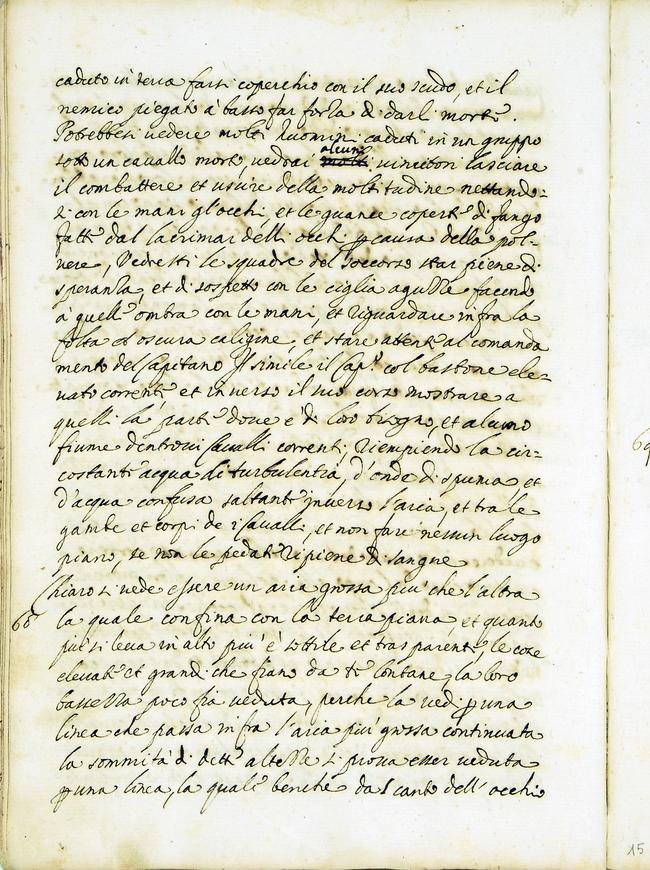 caduto in terra farsi coperchio con il suo scudo, et il
nemico piegato à basso far forza di darli morte.
Potrebbesi vedere molti huomini caduti in un gruppo
sotto un cavallo morto, vedrai alcuni molti vincitori lasciare
il combattere et uscire della moltitudine nettando=
si con le mani gl'occhi, et le guance coperte di fango
fatto dal lacrimar delli occhi ꝑ causa della pol=
vere, Vedresti le squadre del soccorso star piene di
speranza, et di sospetto con le ciglia aguzze facendo
à quelle ombra con le mani, et riguardare infra la
folta et oscura caligine, et stare attente al comanda
mento del Capitano Il simile il Cap.º col bastone ele=
vato corrente et inverso il suo corso mostrare a
quelli la parte dove è di loro bisogno, et alcuno
fiume dentrovi Cavalli correnti, riempiendo la cir=
costante acqua di turbulentia, d'onde di spuma et
d'acqua confusa saltante inverso l'aria, et tra le
gambe et corpi de i Cavalli, et non fare nessun luogo
piano, se non le pedate ripiene di sangue
Chiaro si vede essere un aria grossa più che l'altra
68
la quale confina con la terra piana, et quanto
più si leva in alto più è sottile et trasparente, le cose
elevate et grandi che fiano da te lontane, la loro
bassezza poco fia veduta, perche la vedi ꝑ una
linea che passa infra l'aria più grossa continuata
la sommità di dette altezze si prova esser veduta
ꝑ una linea, la quale benche dal canto dell' occhio
69
15